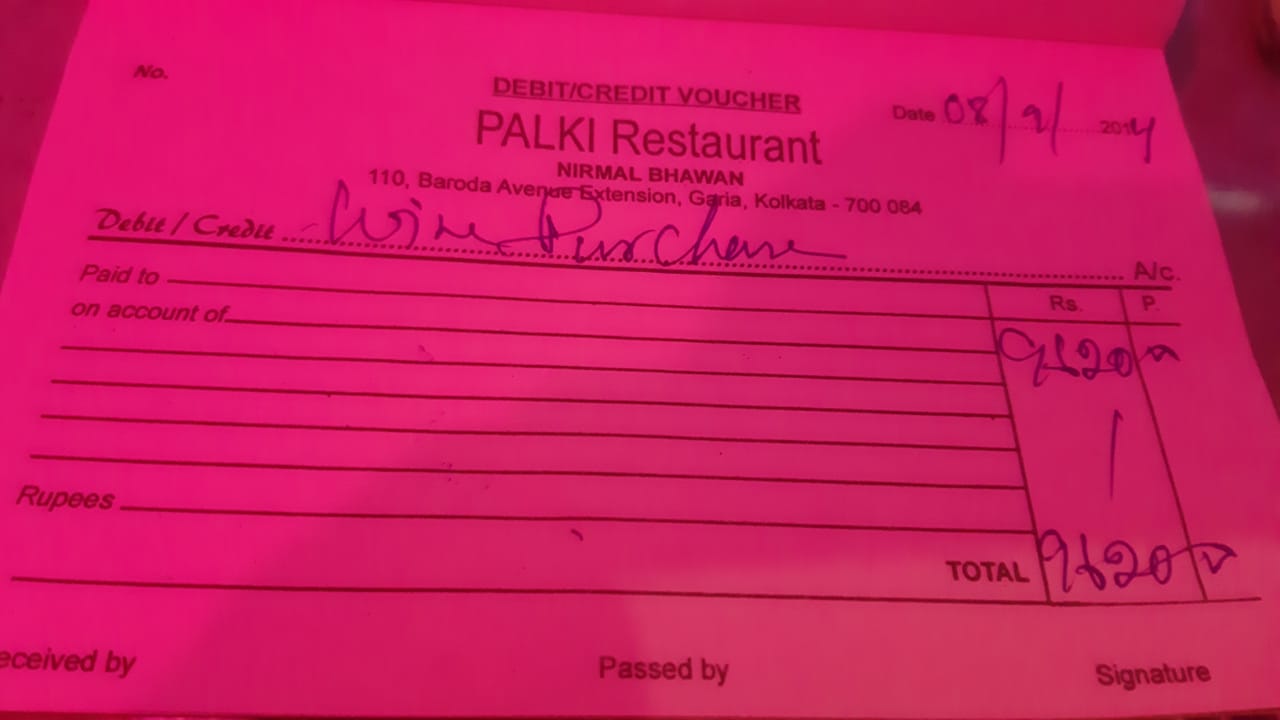 No.
DEBIT/CREDIT VOUCHER
Date 08/9/2014
PALKI Restaurant
NIRMAL BHAWAN
110, Baroda Avenue Extension, Garia, Kolkata - 700 084
Debit / Credit Wine Purchase A/c.
Paid to
Rs. P.
on account of
9620
Rupees
TOTAL 9620
eceived by Passed by Signature